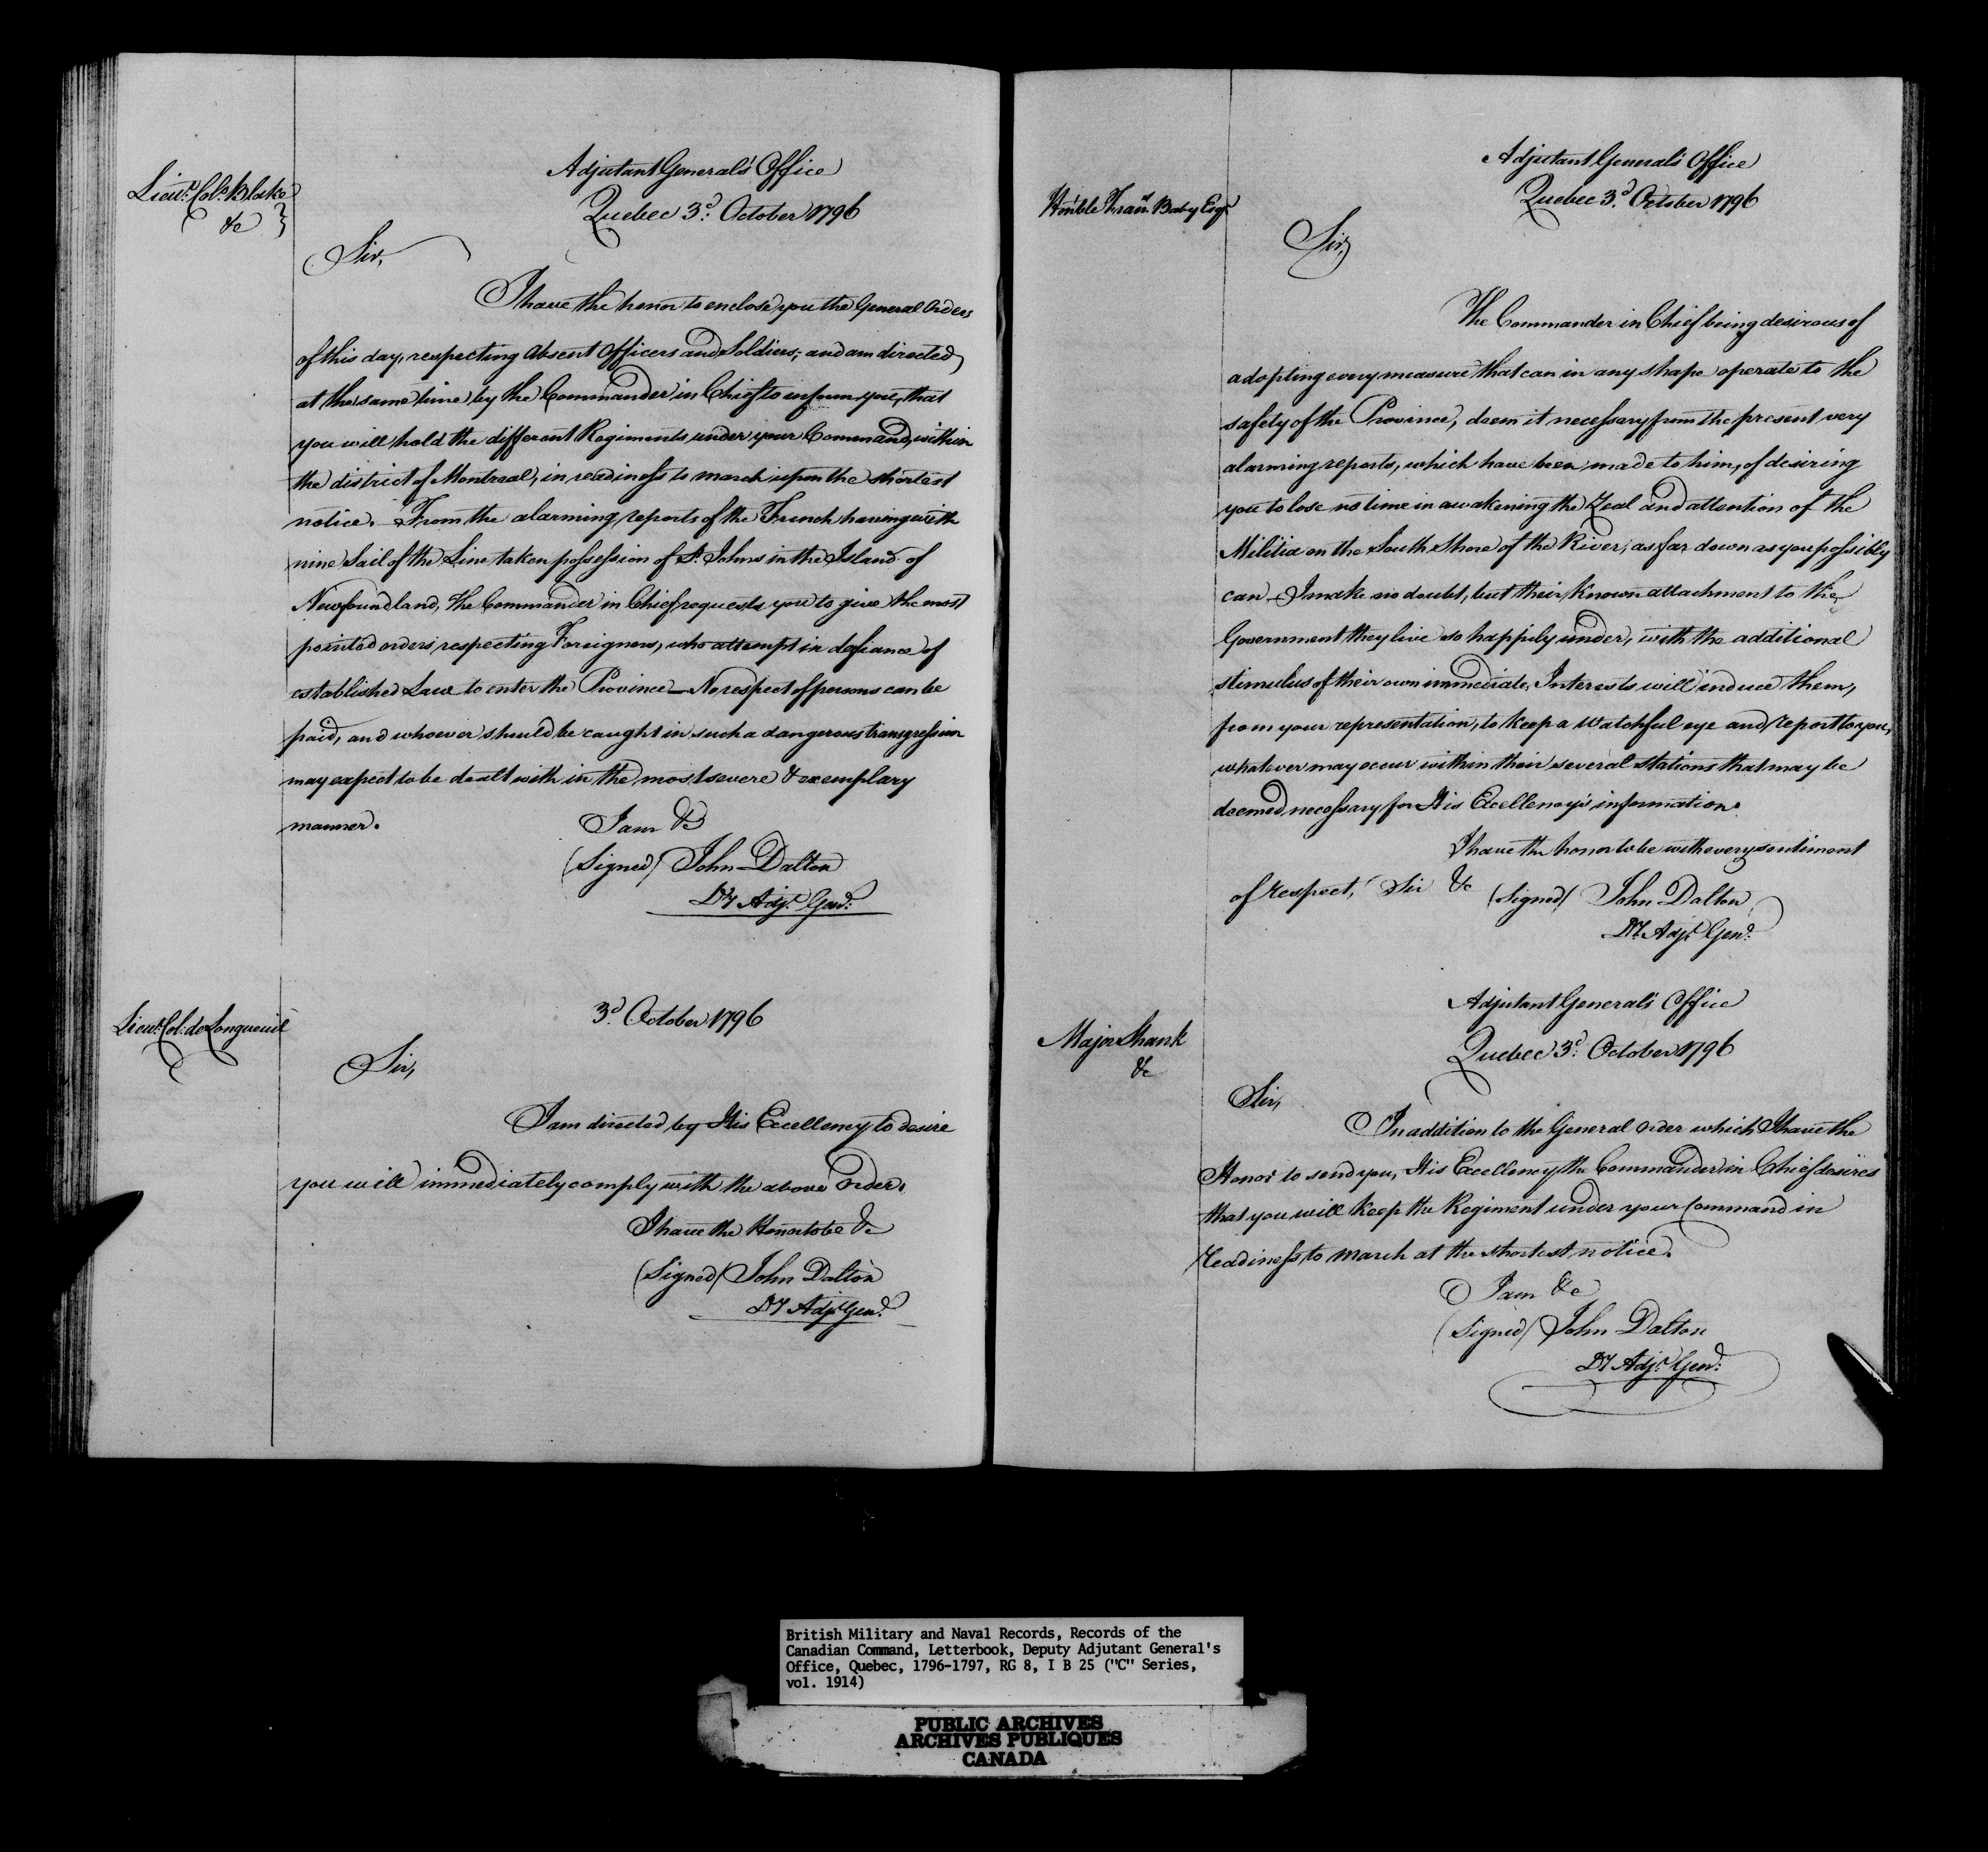 Lieut. Col. Blake
&c
Adjutant General's Office
Quebec 3d. October 1796
Sir,
I have the honor to enclose you the General Orders
of this day, respecting Absent Officers and Soldiers; and am directed
at the same time by the Commander in Chief to inform you, that
you will hold the different Regiments under your Command, within
the district of Montreal, in readiness to march upon the shortest
notice. From the alarming reports of the French having with
nine Sail of the Line taken possession of St. Johns in the Island of
Newfoundland, the Commander in Chief requests you to give the most
pointed orders, respecting Foreigners, who attempt in defiance of
established Law to enter the Province — No respect of persons can be
paid, and whoever should be caught in such a dangerous transgression
may expect to be dealt with in the most severe & exemplary
manner.
I am &c
(Signed) John Dalton
Dy Adjt. Genl.
Lieut. Col. de Longueuil
3d. October 1796
Sir,
I am directed by His Excellency to desire
you will immediately comply with the above Order.
I have the Honor to be &c
(Signed) John Dalton
Dy Adjt. Genl.
Honble Frans. Baby Esqr.
Adjutant General's Office
Quebec 3d. October 1796
Sir,
The Commander in Chief being desirous of
adopting every measure that can in any shape operate to the
safety of the Province, deem it necessary from the present very
alarming reports, which have been made to him, of desiring
you to lose no time in awakening the Zeal and attention of the
Militia on the South Shore of the River, as far down as you possibly
can — I make no doubt, but their known attachment to the
Government they live so happily under, with the additional
stimulus of their own immediate Interests will induce them,
from your representation, to keep a watchful eye and report to you,
whatever may occur within their several stations that may be
deemed necessary for His Excellency's information.
I have the honor to be with every sentiment
of respect, Sir &c (Signed) John Dalton
Dy. Adjt. Genl.
Major Shank
&c
Adjutant General's Office
Quebec 3d. October 1796
Sir,
In addition to the General Order which I have the
Honor to send you, His Excellency the Commander in Chief desires
that you will keep the Regiment under your Command in
readiness to march at the shortest notice.
I am &c
(Signed) John Dalton
Dy Adjt. Genl.
British Military and Naval Records, Records of the
Canadian Command, Letterbook, Deputy Adjutant General's
Office, Quebec, 1796-1797, RG 8, I B 25 ("C" Series,
vol. 1914)
PUBLIC ARCHIVES
ARCHIVES PUBLIQUES
CANADA